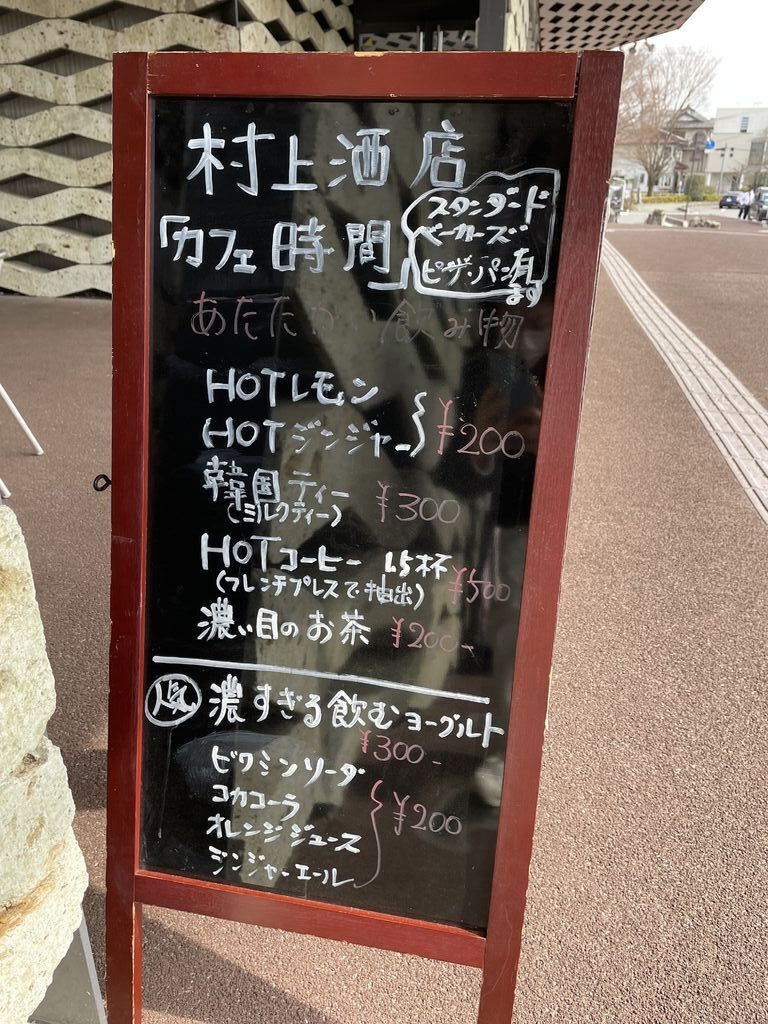 村上酒店
「カフェ時間」
スタンダード
ベーカーズ
ピザ・パン有
ます
あたたかい飲み物
HOTレモン
HOTジンジャー ¥200
韓国ティー ¥300
(ミルクティー)
HOTコーヒー 1.5杯 ¥500
(フレンチプレスで抽出)
濃い目のお茶 ¥200-
人気 濃すぎる飲むヨーグルト
¥300-
ビタミンソーダ
コカコーラ
オレンジジュース ¥200
ジンジャーエール